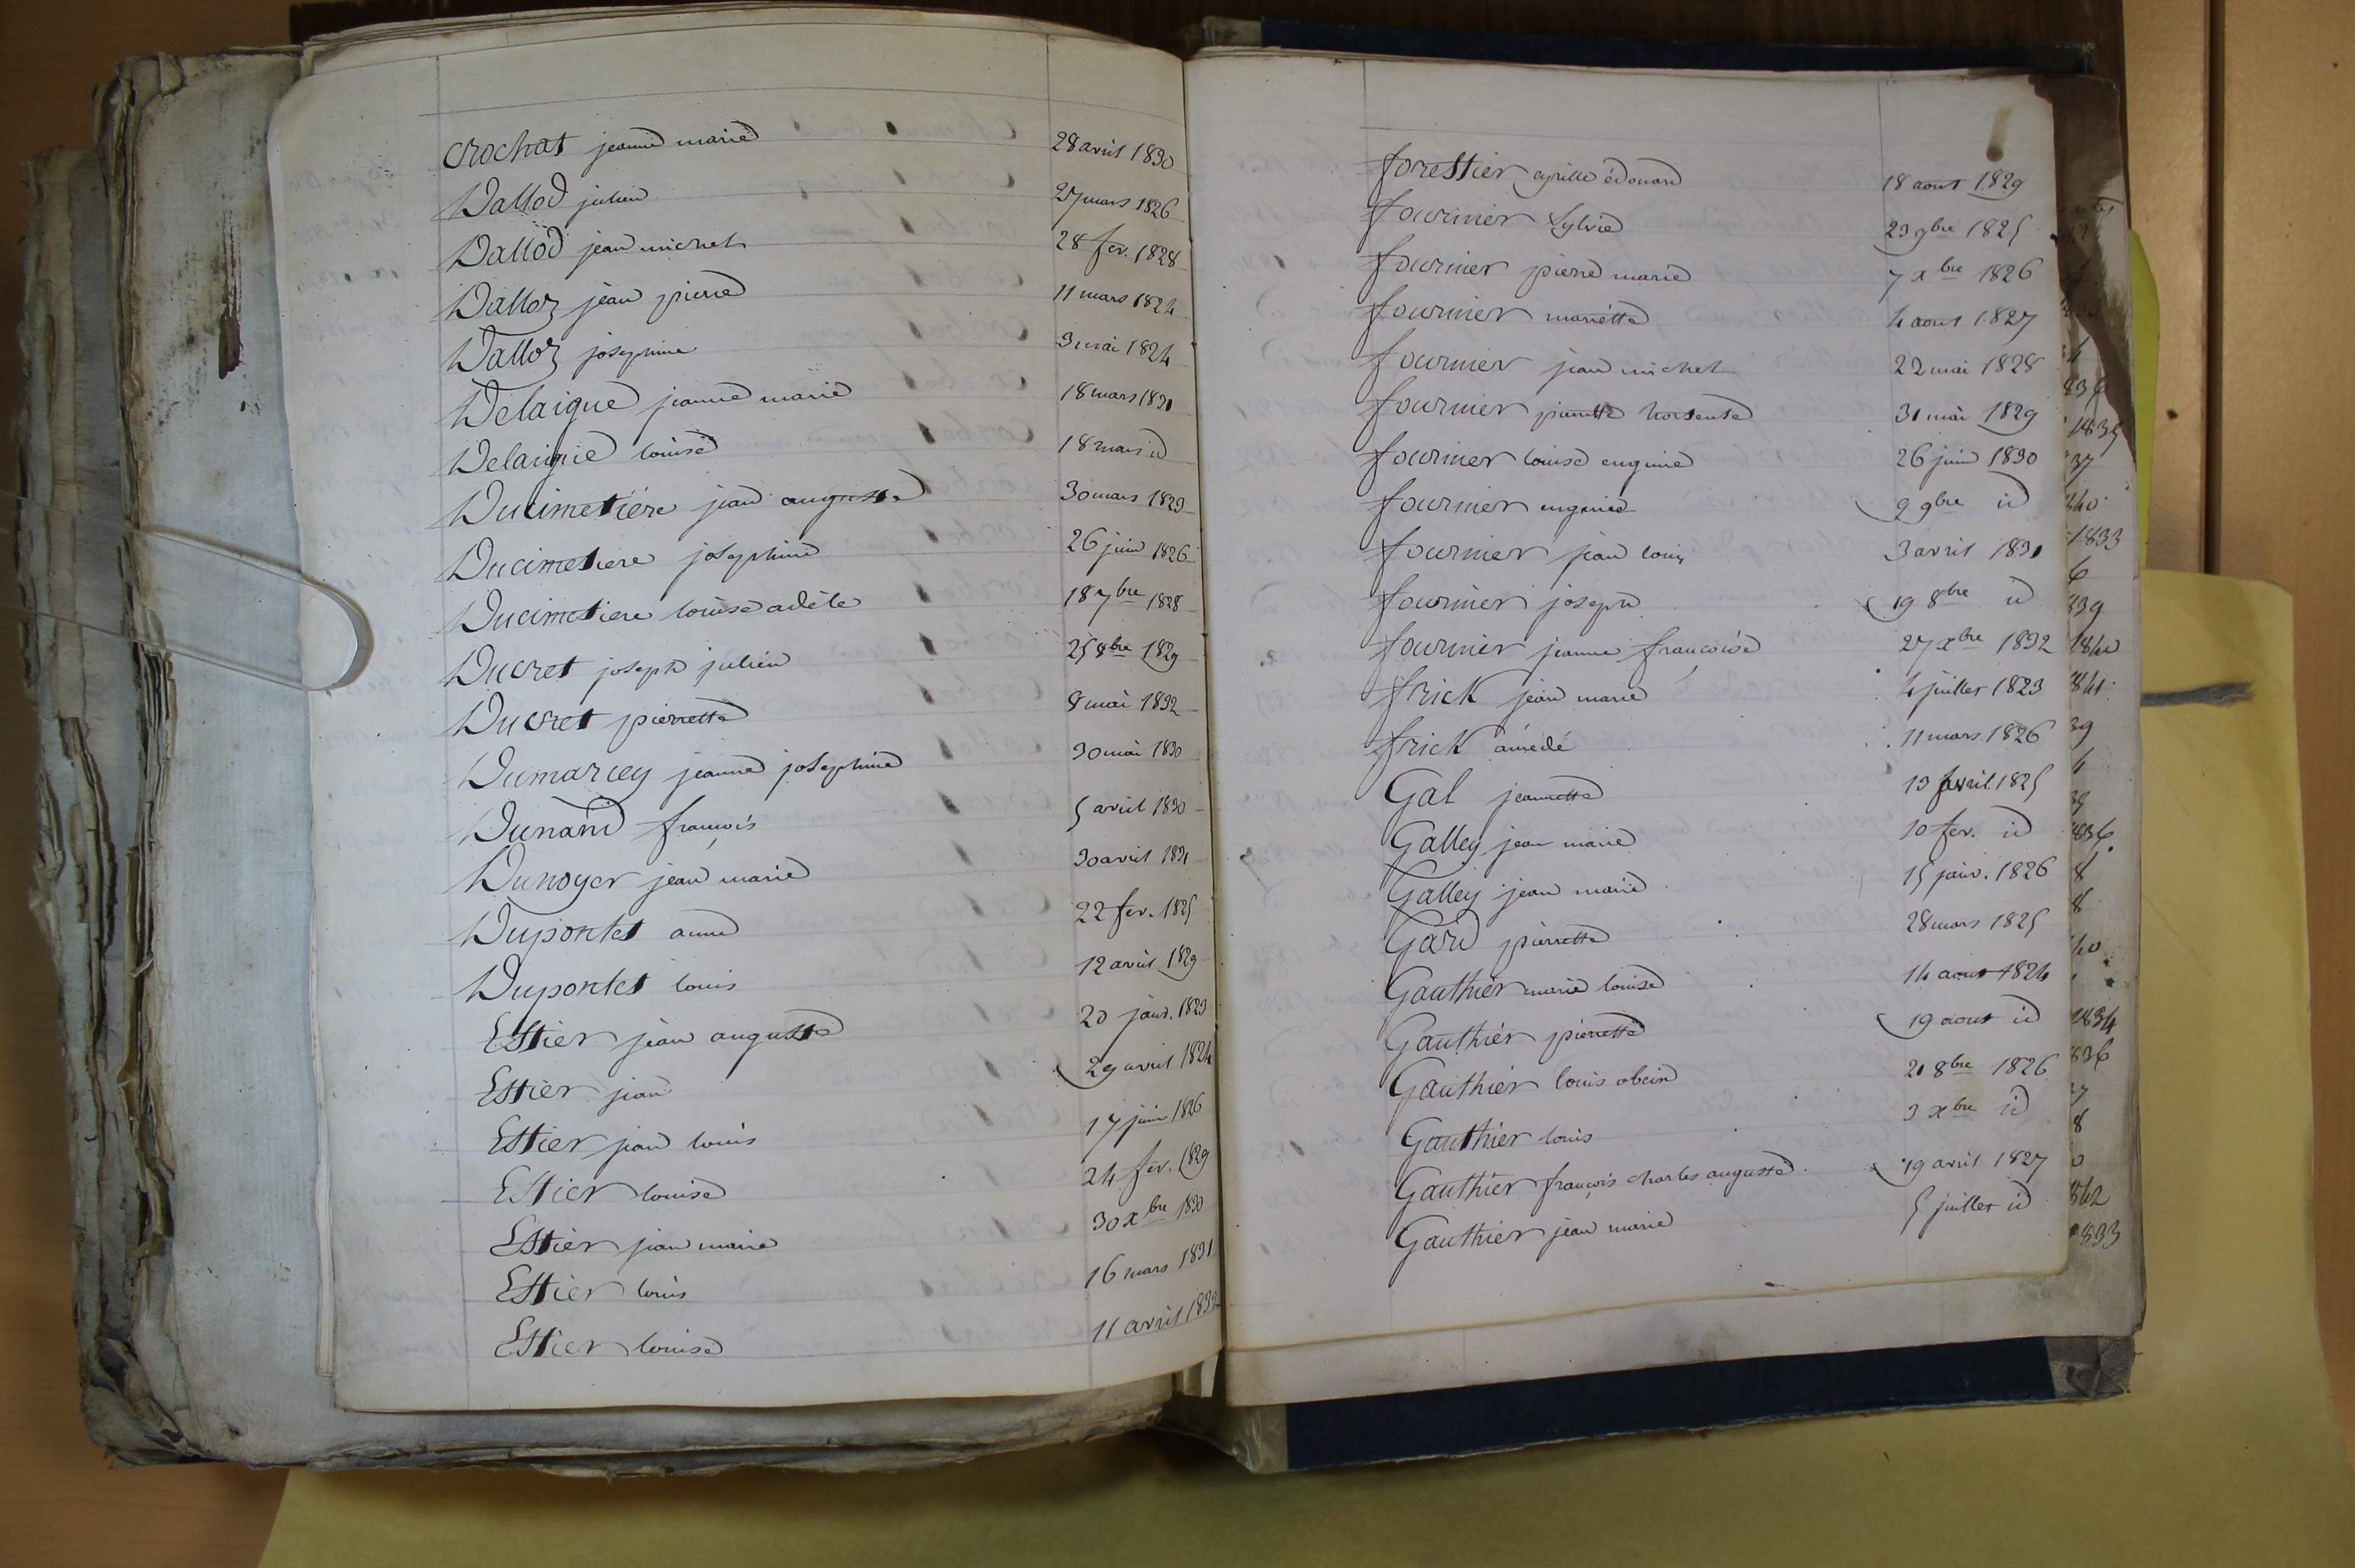 Crochat jeanne marie 28 avril 1830
Dallod julien 27 mars 1826
Dallod jean michel 28 fev. 1828
Dalloz jean pierre 11 mars 1824
Dalloz josephine 3 mai 1824
Delaigue jeanne marie 18 mars 1831
Delaigue louise 18 mars id
Ducimetière jean auguste 30 mars 1823
Ducimetiere josephine 26 juin 1826
Ducimetiere louise adèle 18 7bre 1828
Ducret joseph julien 25 8bre 1829
Ducret pierrette 8 mai 1832
Dumarcey jeanne josephine 30 mai 1830
Dunand françois 5 avril 1830
Dunoyer jean marie 30 avril 1831
Dupontet anne 22 fev. 1825
Dupontet louis 12 avril 1829
Estier jean auguste 20 janv. 1823
Estier jean 29 avril 1824
Estier jean louis 17 juin 1826
Estier louise 24 fev. 1829
Estier jean marie 30 xbre 1830
Estier louis 16 mars 1831
Estier louise 11 avril 1832
forestier cyrille édouard 18 aout 1829
fournier Sylvie 23 9bre 1825
fournier pierre marie 7 xbre 1826
fournier mariette 4 aout 1827
fournier jean michel 22 mai 1828
fournier pierrette hortense 31 mai 1829
fournier louise eugenie 26 juin 1830
fournier eugenie 9 9bre id
fournier jean louis 3 avril 1831
fournier joseph 19 8bre id
fournier jeanne françoise 27 xbre 1832
frick jean marie 4 juillet 1823
frick amédé 11 mars 1826
Gal jeannette 13 avril 1825
Galley jean marie 10 fev. id
Galley jean marie 15 janv. 1826
Gard pierrette 28 mars 1825
Gauthier marie louise 14 aout 1824
Gauthier pierrette 19 aout id
Gauthier louis 21 8bre 1826
Gauthier louis 3 xbre id
Gauthier françois charles auguste 19 avril 1827
Gauthier jean marie 5 juillet id